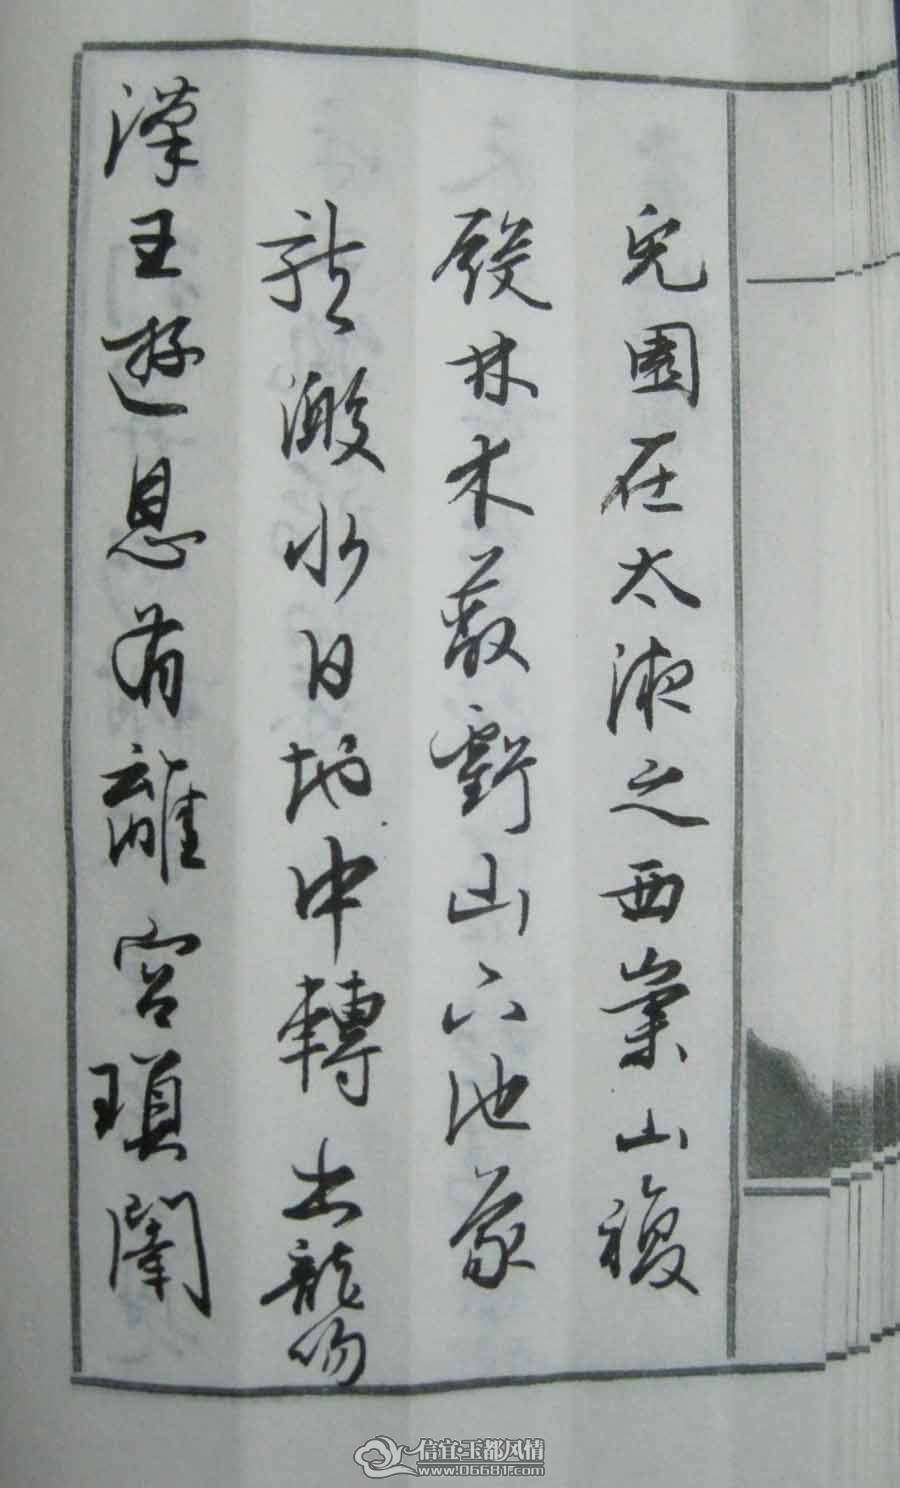 兔園在太液之西崇山複
殿林木蔽虧山下池象
龍激水自地中轉出龍吻
漢王遊息有離宮瑣闥
信宜·玉都风情
www.06681.com